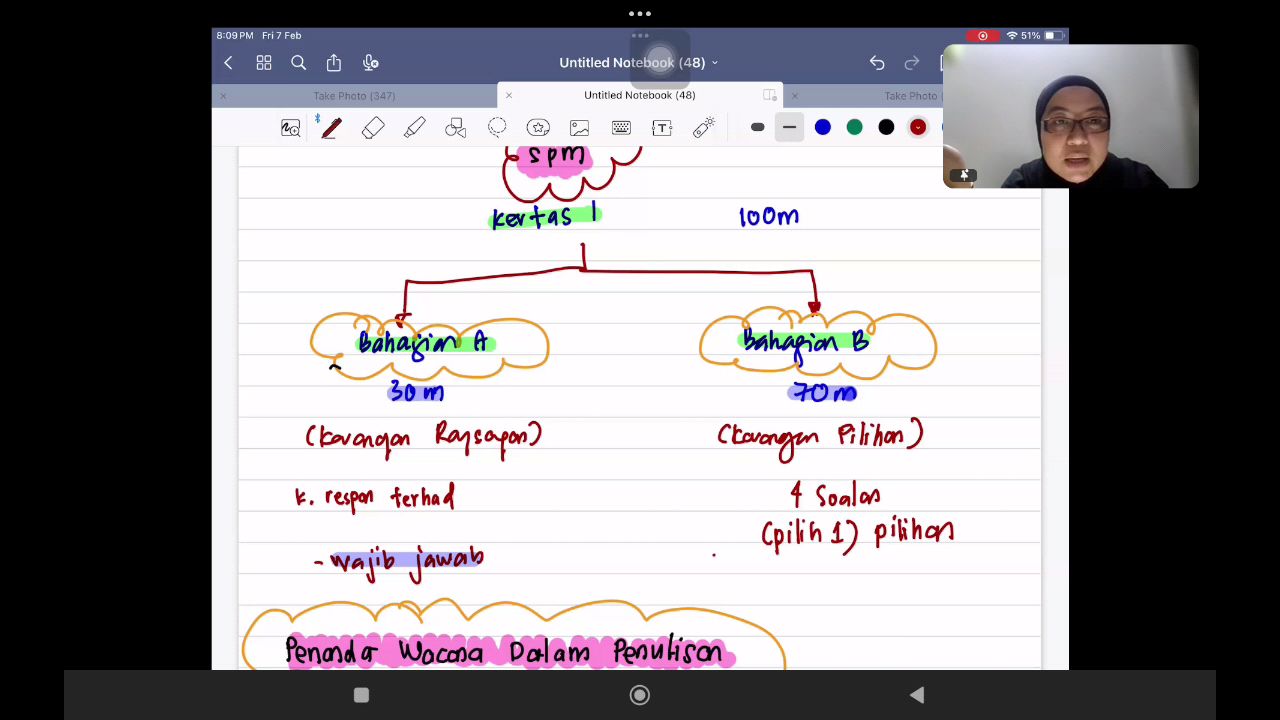 8:09 PM Fri 7 Feb
51%
Untitled Notebook (48)
Take Photo (347)
Untitled Notebook (48)
Take Photo (
spm
kertas 1
100m
Bahagian A
Bahagian B
30m
70m
(Karangan Raysapon)
(Karangan Pilihan)
k. respon terhad
4 Soalan
(pilih 1) pilihan
- wajib jawab
Penanda Wacana Dalam Penulisan